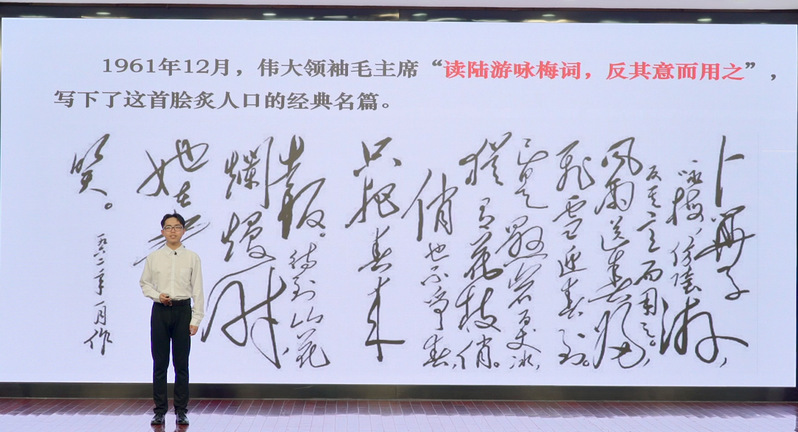 1961年12月，伟大领袖毛主席“读陆游咏梅词，反其意而用之”，
写下了这首脍炙人口的经典名篇。
卜算子
咏梅，仿陸游，
反其意而用之。
風雨送春歸，
飛雪迎春到。
已是懸岩百丈冰，
猶有花枝俏。
俏也不争春，
只把春来
報。待到山花
爛熳時
她在
笑。
一九六二年一月作